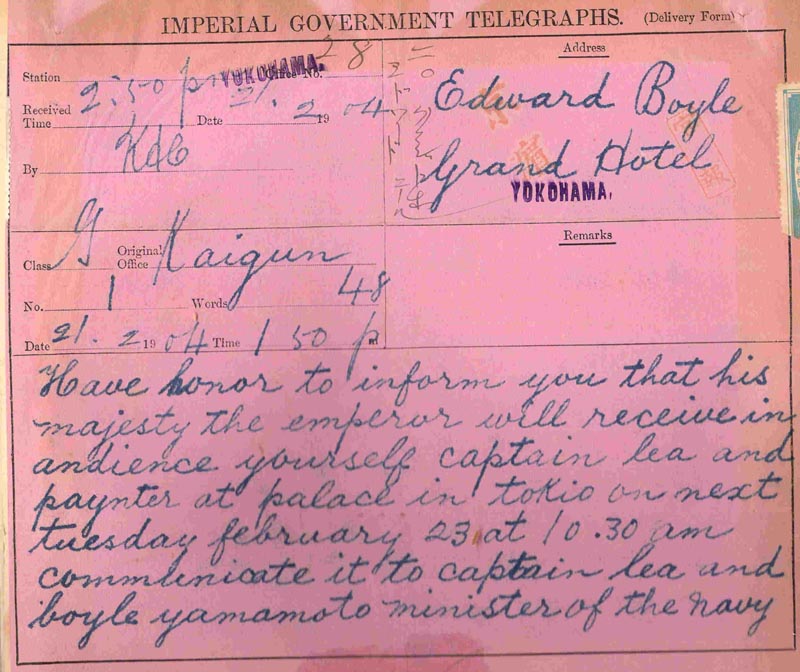 IMPERIAL GOVERNMENT TELEGRAPHS. (Delivery Form)
Station YOKOHAMA. Office No. 28
Received Time 2:50 pm Date 21. 2 1904
By
Address
Edward Boyle
Grand Hotel
YOKOHAMA.
Class G Original Office Kaigun
No. 1 Words 48
Date 21. 2 1904 Time 1 50 p m
Remarks
Have honor to inform you that his
majesty the emperor will receive in
andience yourself captain lea and
paynter at palace in tokio on next
tuesday february 23 at 10.30 am
communicate it to captain lea and
boyle yamamoto minister of the navy